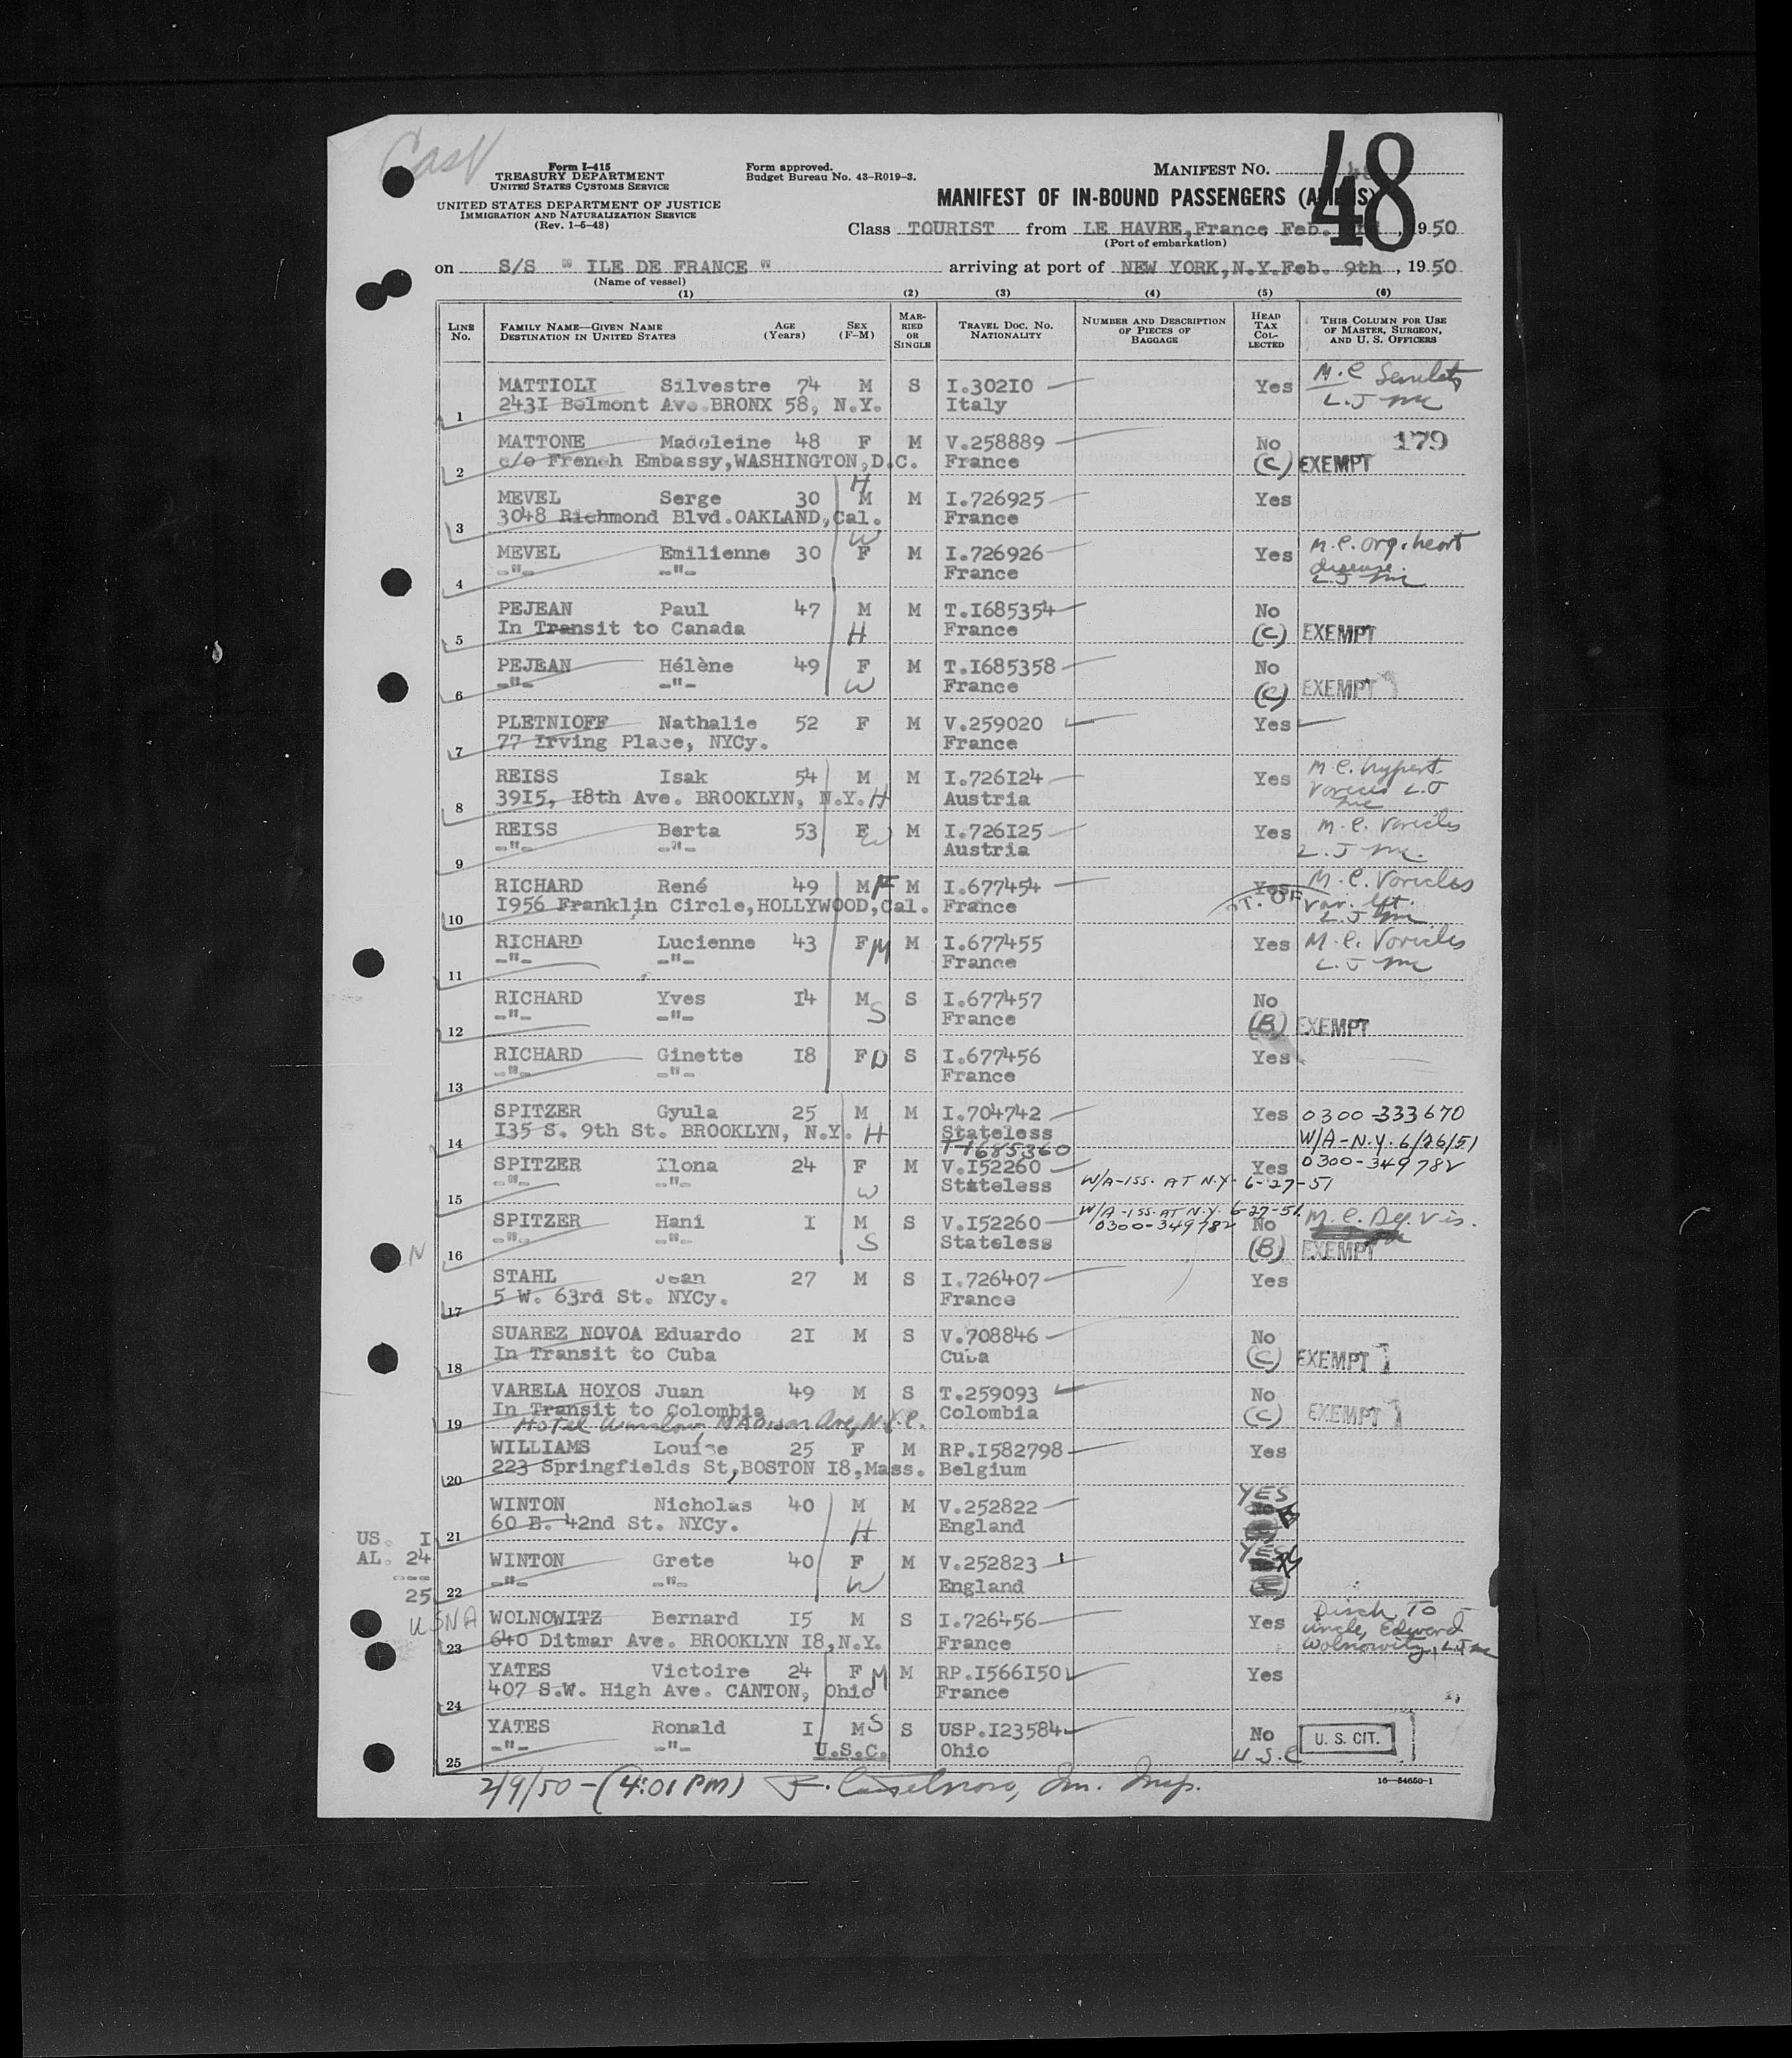 Form I-415
TREASURY DEPARTMENT
UNITED STATES CUSTOMS SERVICE
UNITED STATES DEPARTMENT OF JUSTICE
IMMIGRATION AND NATURALIZATION SERVICE
(Rev. 1-6-48)
Form approved.
Budget Bureau No. 43-R019-3.
MANIFEST NO.
48
MANIFEST OF IN-BOUND PASSENGERS (ALIENS)
Class TOURIST from LE HAVRE, France Feb. , 1950
(Port of embarkation)
on S/S " ILE DE FRANCE " arriving at port of NEW YORK, N.Y. Feb. 9th , 1950
(Name of vessel)
(1) (2) (3) (4) (5) (6)
LINE No. FAMILY NAME—GIVEN NAME DESTINATION IN UNITED STATES AGE (Years) SEX (F-M) MARRIED OR SINGLE TRAVEL DOC. NO. NATIONALITY NUMBER AND DESCRIPTION OF PIECES OF BAGGAGE HEAD TAX COLLECTED THIS COLUMN FOR USE OF MASTER, SURGEON, AND U. S. OFFICERS
MATTIOLI Silvestre 74 M S I.30210 Yes M.C. L.J.
1 2431 Belmont Ave. BRONX 58, N.Y. Italy
MATTONE Madeleine 48 F M V.258889 No 179
2 c/o French Embassy, WASHINGTON, D.C. France (C) EXEMPT
MEVEL Serge 30 M H M I.726925 Yes
3 3048 Richmond Blvd. OAKLAND, Cal. France
MEVEL Emilienne 30 F W M I.726926 Yes M.C. org. heart disease. L.J.
4 -"- -"- France
PEJEAN Paul 47 M M T.I685354 No
5 In Transit to Canada H France (C) EXEMPT
PEJEAN Hélène 49 F M T.I685358 No
6 -"- -"- W France (C) EXEMPT
PLETNIOFF Nathalie 52 F M V.259020 Yes
7 77 Irving Place, NYCy. France
REISS Isak 54 M M I.726I24 Yes M.C. hypert. L.J.
8 39I5, I8th Ave. BROOKLYN, N.Y. H Austria
REISS Berta 53 F W M I.726I25 Yes M.C. L.J.
9 -"- -"- Austria
RICHARD René 49 M F M I.677454 Yes M.C. L.J.
10 I956 Franklin Circle, HOLLYWOOD, Cal. France
RICHARD Lucienne 43 F M M I.677455 Yes M.C. L.J.
11 -"- -"- France
RICHARD Yves I4 M S S I.677457 No
12 -"- -"- France (B) EXEMPT
RICHARD Ginette I8 F D S I.677456 Yes
13 -"- -"- France
SPITZER Gyula 25 M M I.704742 Yes 0300-333670
14 I35 S. 9th St. BROOKLYN, N.Y. H Stateless W/A-N.Y. 6/26/51
T-1685360
SPITZER Ilona 24 F M V.I52260 Yes 0300-349782
15 -"- -"- W Stateless W/A-ISS. AT N.Y. 6-27-51
SPITZER Hani I M S V.I52260 W/A-ISS. AT N.Y. 6-27-51 0300-349782 No M.C. vis.
16 -"- -"- S Stateless (B) EXEMPT
STAHL Jean 27 M S I.726407 Yes
17 5 W. 63rd St. NYCy. France
SUAREZ NOVOA Eduardo 2I M S V.708846 No
18 In Transit to Cuba Cuba (C) EXEMPT
VARELA HOYOS Juan 49 M S T.259093 No
19 In Transit to Colombia Colombia (C) EXEMPT
Hotel Winslow, Madison Ave, N.Y.C.
WILLIAMS Louise 25 F M RP.I582798 Yes
20 223 Springfields St, BOSTON I8, Mass. Belgium
WINTON Nicholas 40 M M V.252822 YES
21 60 E. 42nd St. NYCy. H England
WINTON Grete 40 F M V.252823 YES
22 -"- -"- W England
US. I
AL. 24
---
25
USNA
WOLNOWITZ Bernard I5 M S I.726456 Yes Disch. To
23 640 Ditmar Ave. BROOKLYN I8, N.Y. France uncle, Edward Wolnowitz, L.J.
YATES Victoire 24 F M M RP.I566I50 Yes
24 407 S.W. High Ave. CANTON, Ohio France
YATES Ronald I M S S USP.I23584 No U. S. CIT.
25 -"- -"- U.S.C. Ohio U.S.C
2/9/50 - (4:01 PM)
16-54650-1